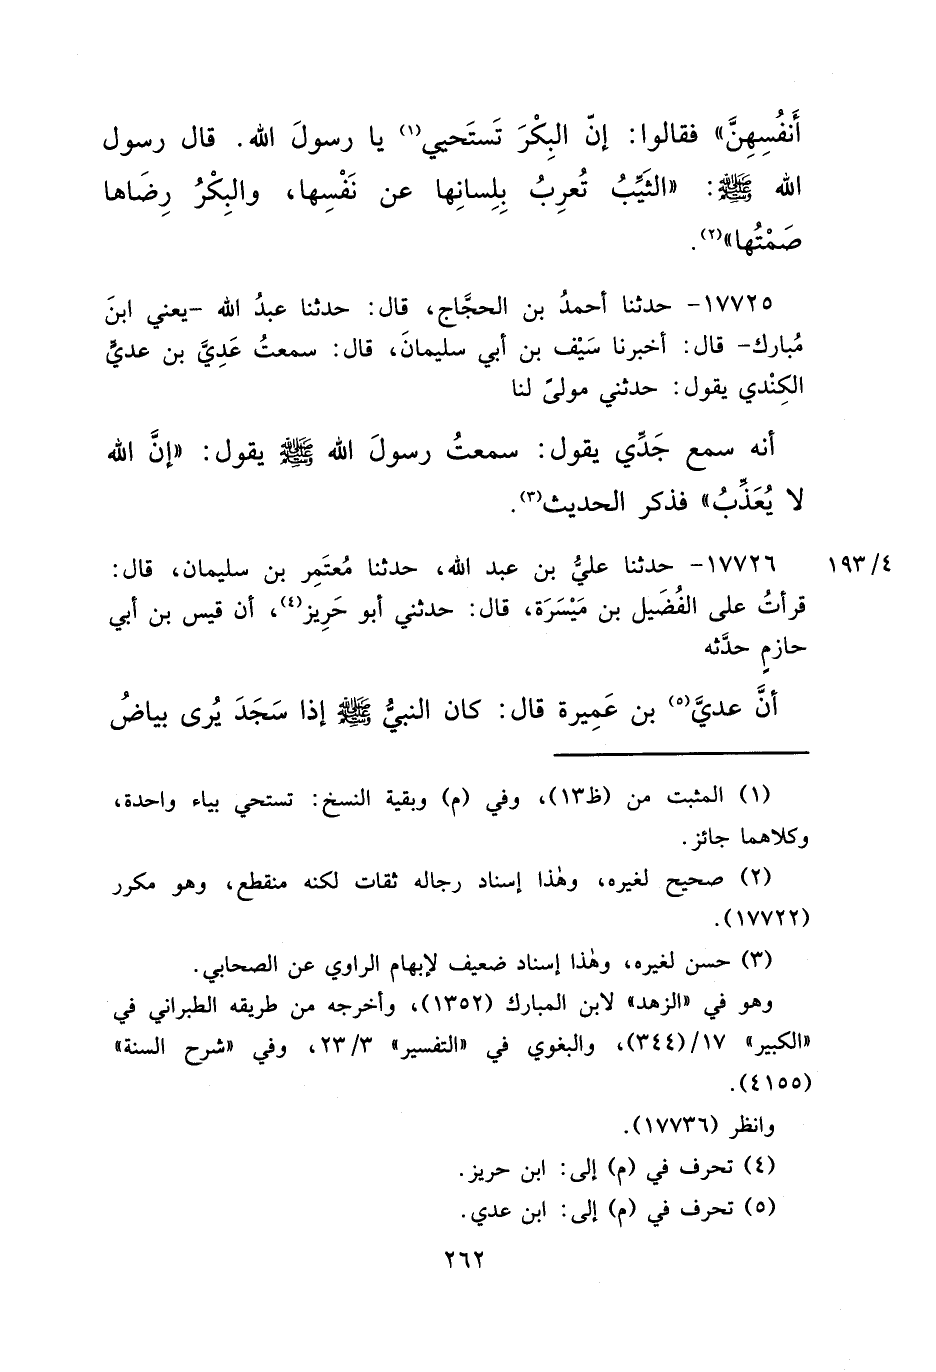 أَنفُسِهِنَّ» فقالوا: إنّ البِكْرَ تَستَحيي(١) يا رسولَ الله. قال رسول
الله ﷺ: «الثَيِّبُ تُعرِبُ بِلِسانِها عن نَفْسِها، والبِكْرُ رِضَاها
صَمْتُها»(٢).
١٧٧٢٥- حدثنا أحمدُ بن الحجَّاج، قال: حدثنا عبدُ الله -يعني ابنَ
مُبارك- قال: أخبرنا سَيْف بن أبي سليمانَ، قال: سمعتُ عَدِيَّ بن عديٍّ
الكِنْدي يقول: حدثني مولىً لنا
أنه سمع جَدِّي يقول: سمعتُ رسولَ الله ﷺ يقول: «إنَّ الله
لا يُعَذِّبُ» فذكر الحديث(٣).
١٩٣/٤ ١٧٧٢٦- حدثنا عليُّ بن عبد الله، حدثنا مُعتَمِر بن سليمان، قال:
قرأتُ على الفُضَيل بن مَيْسَرَة، قال: حدثني أبو حَرِيز(٤)، أن قيس بن أبي
حازمٍ حدَّثه
أنَّ عديَّ(٥) بن عَمِيرة قال: كان النبيُّ ﷺ إذا سَجَدَ يُرى بياضُ
(١) المثبت من (ظ١٣)، وفي (م) وبقية النسخ: تستحي بياء واحدة،
وكلاهما جائز.
(٢) صحيح لغيره، وهٰذا إسناد رجاله ثقات لكنه منقطع، وهو مكرر
(١٧٧٢٢).
(٣) حسن لغيره، وهٰذا إسناد ضعيف لإبهام الراوي عن الصحابي.
وهو في «الزهد» لابن المبارك (١٣٥٢)، وأخرجه من طريقه الطبراني في
«الكبير» ١٧/(٣٤٤)، والبغوي في «التفسير» ٢٣/٣، وفي «شرح السنة»
(٤١٥٥).
وانظر (١٧٧٣٦).
(٤) تحرف في (م) إلى: ابن حريز.
(٥) تحرف في (م) إلى: ابن عدي.
٢٦٢